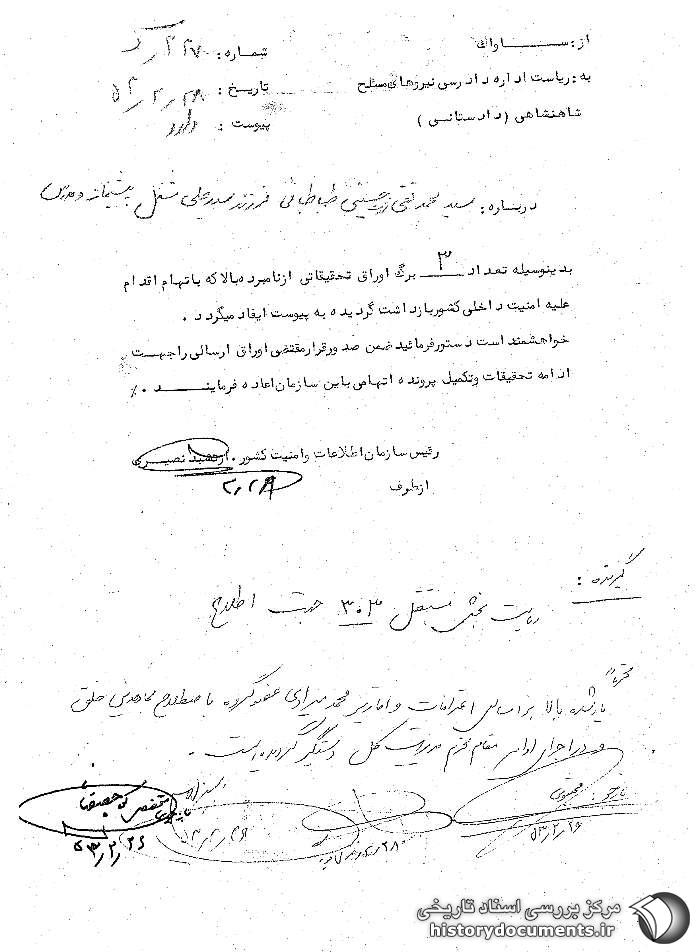 از: ســـــاواك
شماره:
به: ریاست اداره دادرسی نیروهای مسلح
تاریخ:
شاهنشاهی (دادستانی)
پیوست: دارد
درباره: سید محمد تقی حسینی طباطبائی فرزند سید علی شغل پیشنماز و مدرس
بدینوسیله تعداد ۳ برگ اوراق تحقیقاتی از نامبرده بالا که باتهام اقدام
علیه امنیت داخلی کشور بازداشت گردیده به پیوست ایفاد میگردد.
خواهشمند است دستور فرمائید ضمن صدور قرار مقتضی اوراق ارسالی را جهـــت
ادامه تحقیقات وتکمیل پرونده اتهامی باین سازمان اعاده فرماینــــــد ٪.
رئیس سازمان اطلاعات وامنیت کشور. ارتشبد نصیـــری
از طرف
گیرنده:
ریاست بخش مستقل ۳۰۲ جهت اطلاع
محترماً
بازداشت شده بالا براساس اعترافات و محمد عضو گروه باصطلاح مجاهدین خلق
و در اجرای اوامر مقام محترم مدیریت کل دستگیر گردیده است.
۵۳/۲/۲۶
۵۳/۲/۲۶
مرکز بررسی اسناد تاریخی
historydocuments.ir